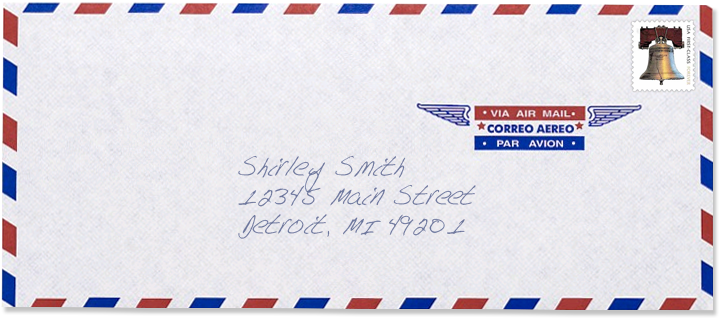 USA FIRST-CLASS FOREVER
• VIA AIR MAIL •
★ CORREO AEREO ★
• PAR AVION •
Shirley Smith
12345 Main Street
Detroit, MI 49201